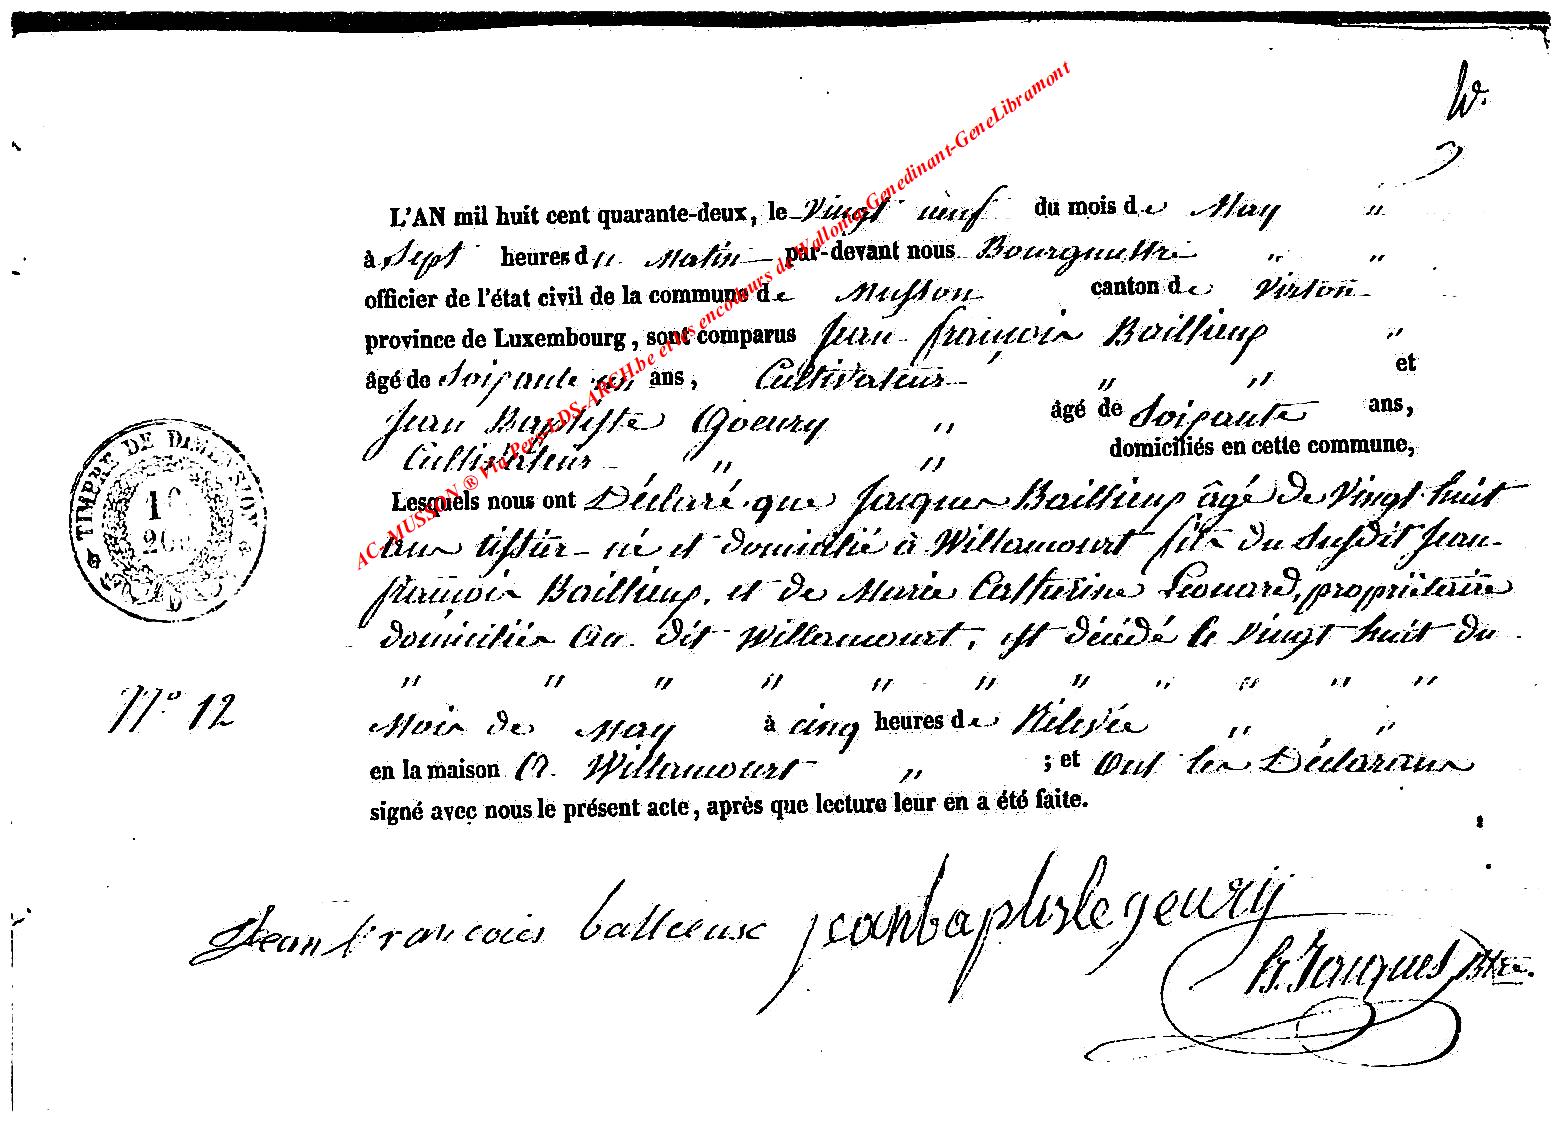 W.
L'AN mil huit cent quarante-deux, le Vingt neuf du mois de May "
à Sept heures du Matin par-devant nous Bourguemestre " "
officier de l'état civil de la commune de Musson canton de Virton
province de Luxembourg, sont comparus Jean françois Baillieux "
âgé de Soixante ans, Cultivateur " " et
Jean Baptiste Goeury " âgé de Soixante ans,
Cultivateur " " domiciliés en cette commune,
Lesquels nous ont Déclaré que Jacques Baillieux âgé de Vingt huit
ans tissier né et domicilié à Willancourt fils du Susdit Jean
françois Baillieux, et de Marie Catherine Leonard, propriétaire
domiciliés au dit Willancourt, est décédé le Vingt huit du
" " " " " " " " " " "
N° 12
Mois de May à cinq heures de Rélevée " "
en la maison A Willancourt " ; et Ont les Déclarans
signé avec nous le présent acte, après que lecture leur en a été faite.
Jean francois ballieux jeanbaptistegeury
H. Jacques Btre.
TIMBRE DE DIMENSION
AC-MUSSON ® Via Pers-LDS-ARCH.be et les encodeurs de Wallonia-Genedinant-GeneLibramont